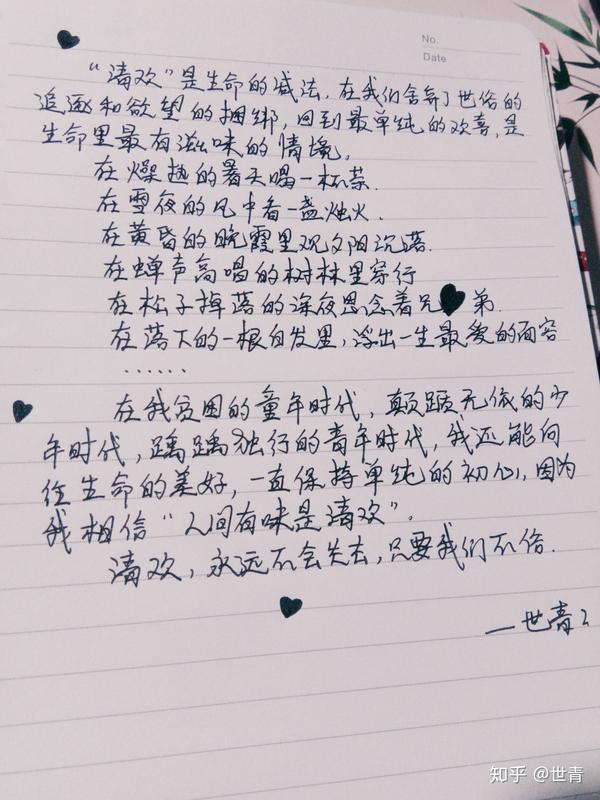 No.
Date
“清欢”是生命的减法,在我们舍弃了世俗的
追逐和欲望的捆绑,回到最单纯的欢喜,是
生命里最有滋味的情境。
在燥热的暑天喝一杯茶.
在雪夜的风中看一盏烛火.
在黄昏的晚霞里观夕阳沉落.
在蝉声高唱的树林里穿行
在松子掉落的深夜思念着兄弟.
在落下的一根白发里,浮出一生最爱的面容
......
在我贫困的童年时代,颠踬无依的少
年时代,踽踽独行的青年时代,我还能向
往生命的美好,一直保持单纯的初心,因为
我相信“人间有味是清欢”.
清欢,永远不会失去,只要我们不俗.
—世青
知乎 @世青